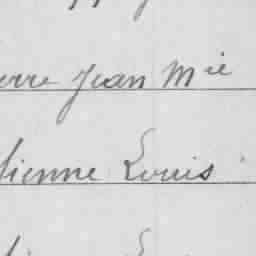 erre Jean Mie
tienne Louis